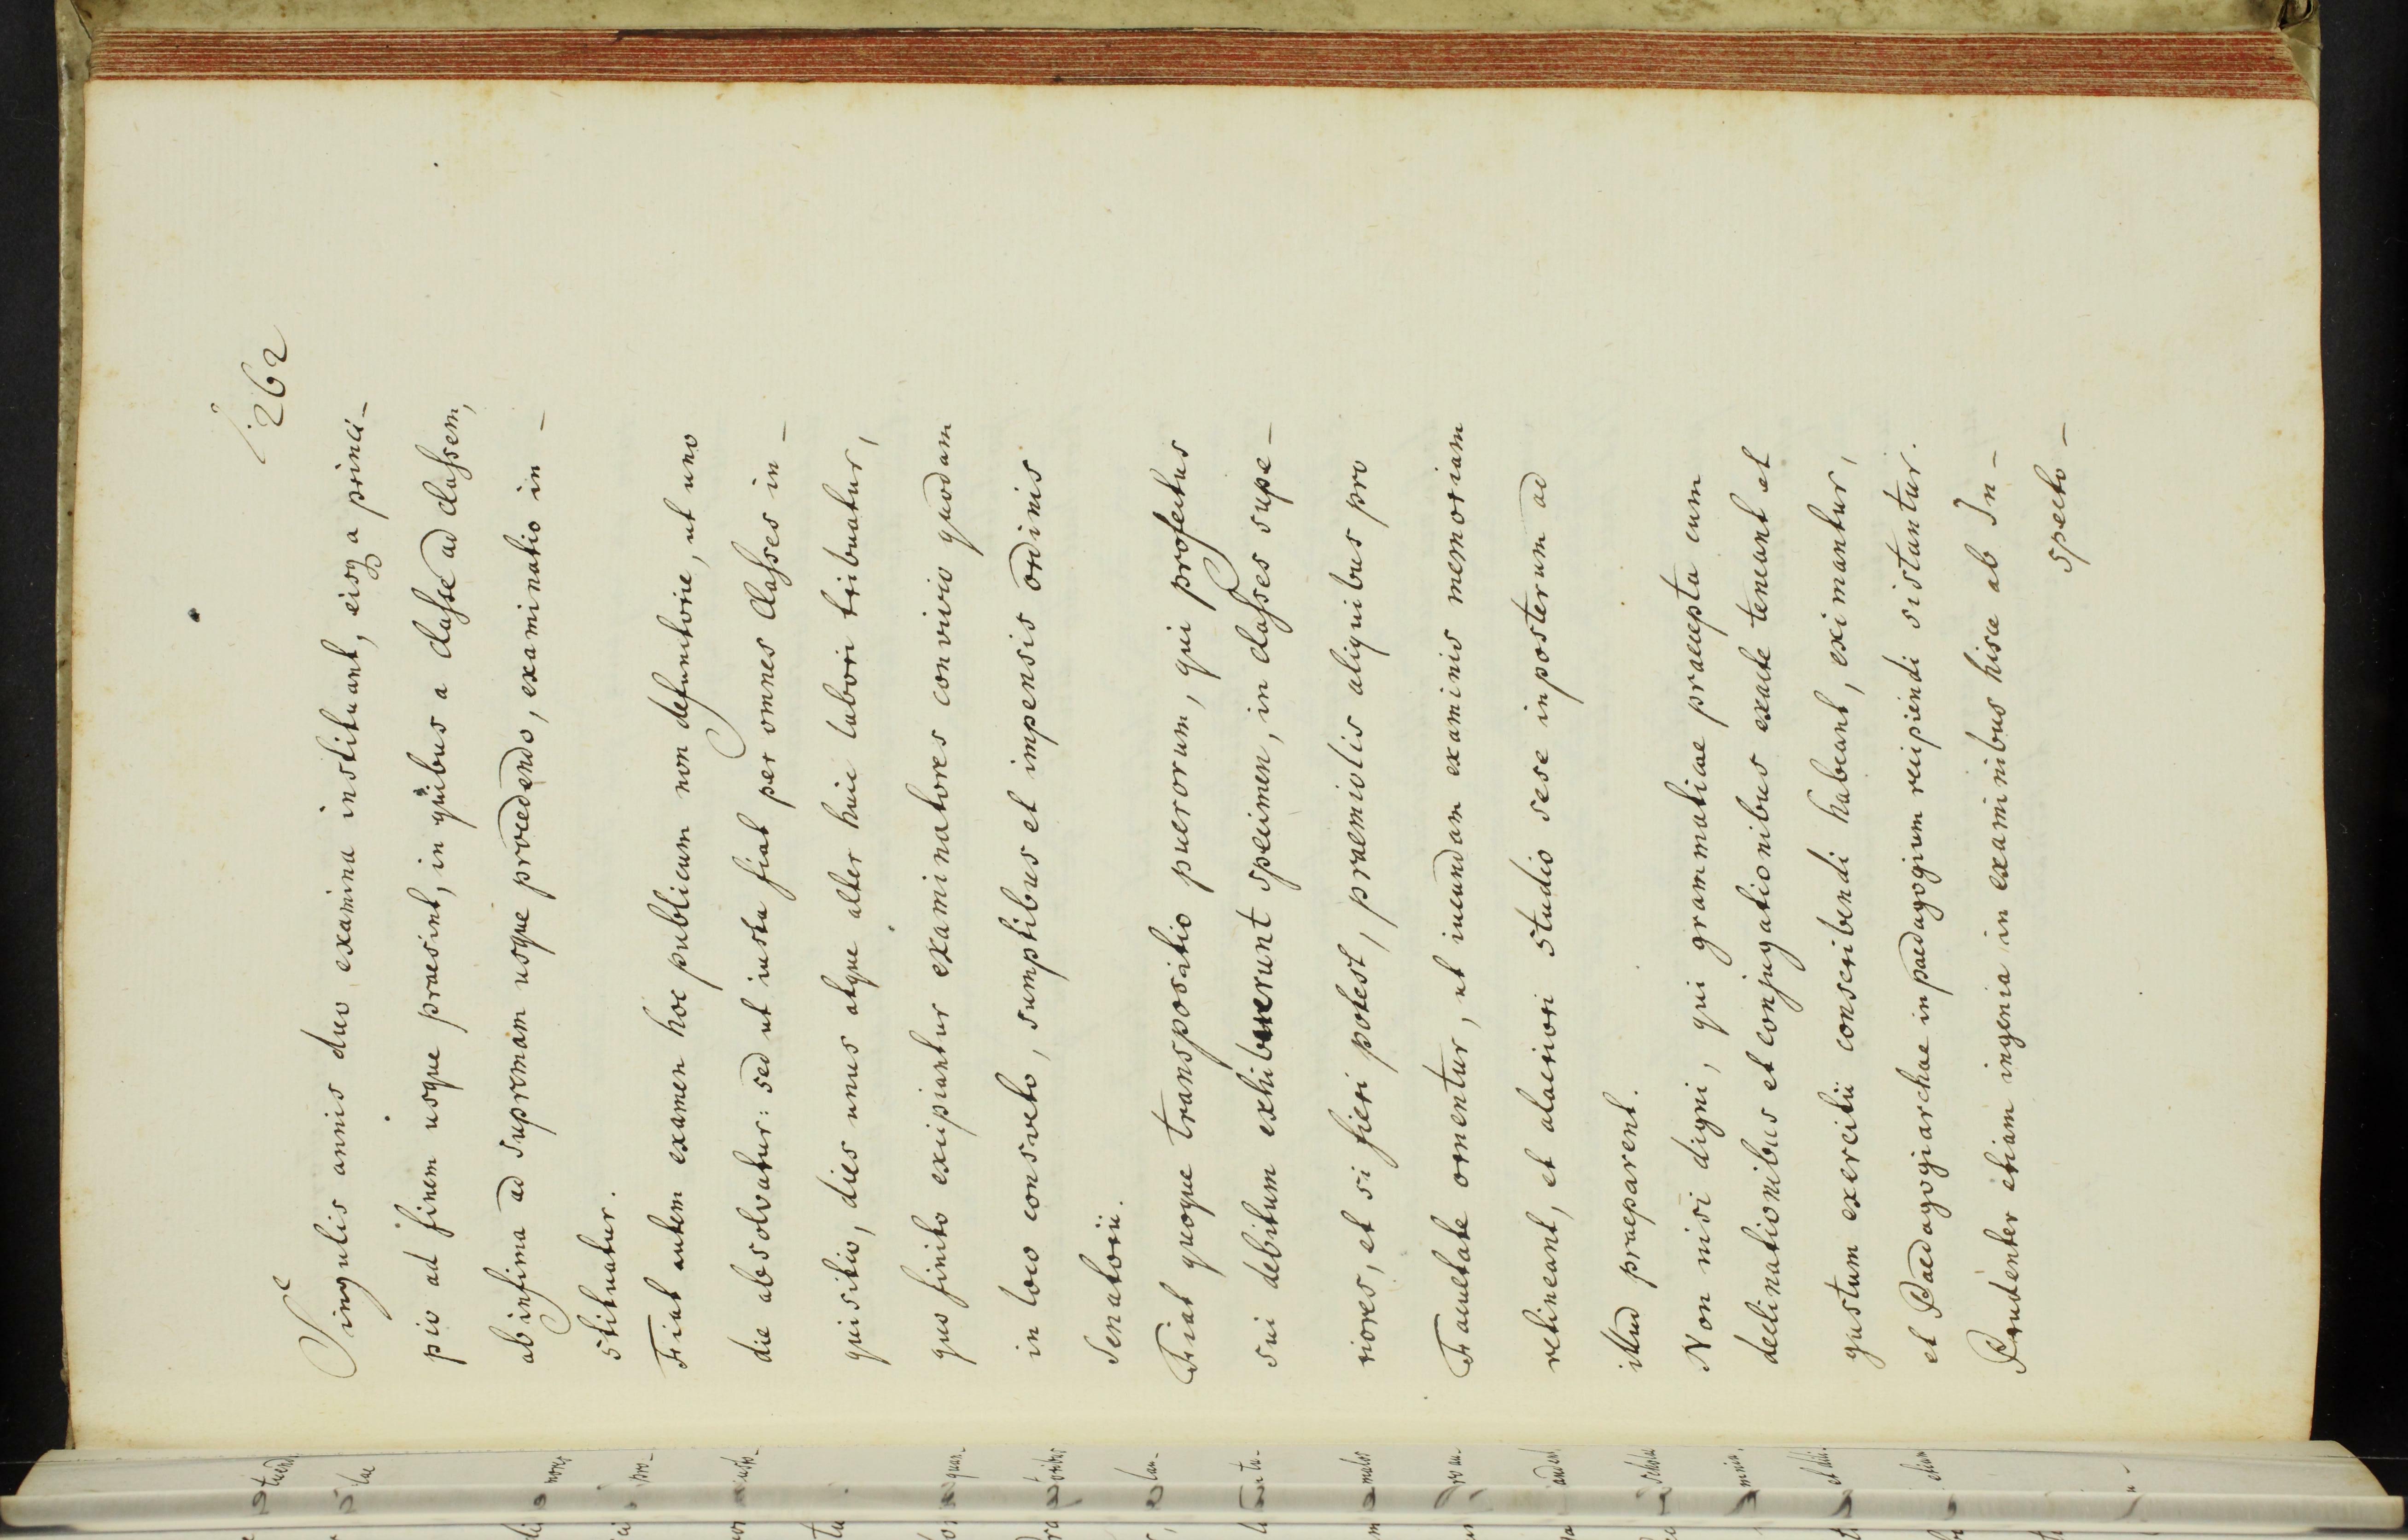 262
Singulis annis duo examina instituant, eisq a princi-
pio ad finem usque praesint, in quibus a classe ad classem,
ab infima ad supremam usque procedendo, examinatio in-
stituatur.
Fiat autem examen hoc publicum non defunctorie, ut uno
die absolvatur: sed ut iusta fiat per omnes classes in-
quisitio, dies unus atque alter huic labori tribuatur,
quo finito excipiantur examinatores convivio quodam
in loco consveto, sumptibus et impensis ordinis
Senatorii.
Fiat quoque transpositio puerorum, qui profectus
sui debitum exhibuerunt specimen, in classes supe-
riores, et si fieri potest, praemiolis aliquibus pro
Facultate ornentur, ut iucundam examinis memoriam
retineant, et alacriori studio sese inposterum ad
illud praeparent.
Non nisi digni, qui grammaticae praecepta cum
declinationibus et conjugationibus exacte teneant et
gustum exercitii conscribendi habeant, eximantur,
et Paedagogiarchae in paedagogium recipiendi sistantur.
Prudenter etiam ingenia in examinibus hisce ab In-
specto-